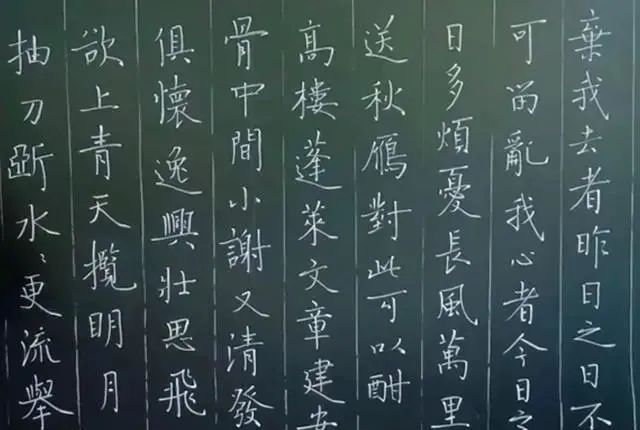 棄我去者昨日之日不
可留亂我心者今日之
日多煩憂長風萬里
送秋鴈對此可以酣
高樓蓬萊文章建安
骨中間小謝又清發
俱懷逸興壯思飛
欲上青天攬明月
抽刀斷水〻更流舉